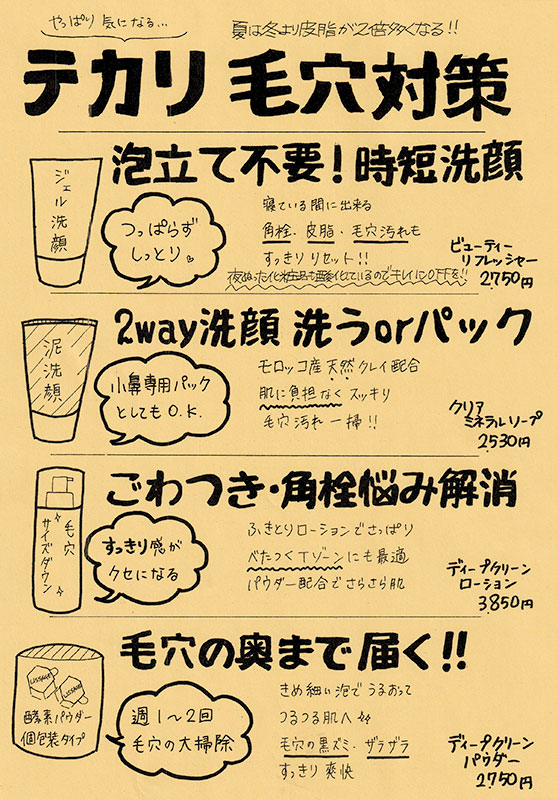 やっぱり 気になる…
夏は冬より皮脂が2倍多くなる!!
テカリ 毛穴対策
泡立て不要！時短洗顔
ジェル洗顔
つっぱらず
しっとり。
寝ている間に出来る
角栓、皮脂・毛穴汚れも
すっきりリセット!!
夜ぬった化粧品も酸化しているのでキレイにOFFを!!
ビューティー
リフレッシャー
2,750円
2way洗顔 洗うorパック
泥洗顔
小鼻専用パック
としてもO.K.
モロッコ産天然クレイ配合
肌に負担なくスッキリ
毛穴汚れ一掃!!
クリア
ミネラルソープ
2530円
ごわつき・角栓悩み解消
毛穴
サイズダウン
すっきり感が
クセになる
ふきとりローションでさっぱり
べたつくTゾーンにも最適
パウダー配合でさらさら肌
ディープクリーン
ローション
3,850円
毛穴の奥まで届く!!
LISSAGE
LISSAGE
酵素パウダー
個包装タイプ
週1～2回
毛穴の大掃除
きめ細い泡でうるおって
つるつる肌へ
毛穴の黒ズミ、ザラザラ
すっきり爽快
ディープクリーン
パウダー
2,750円